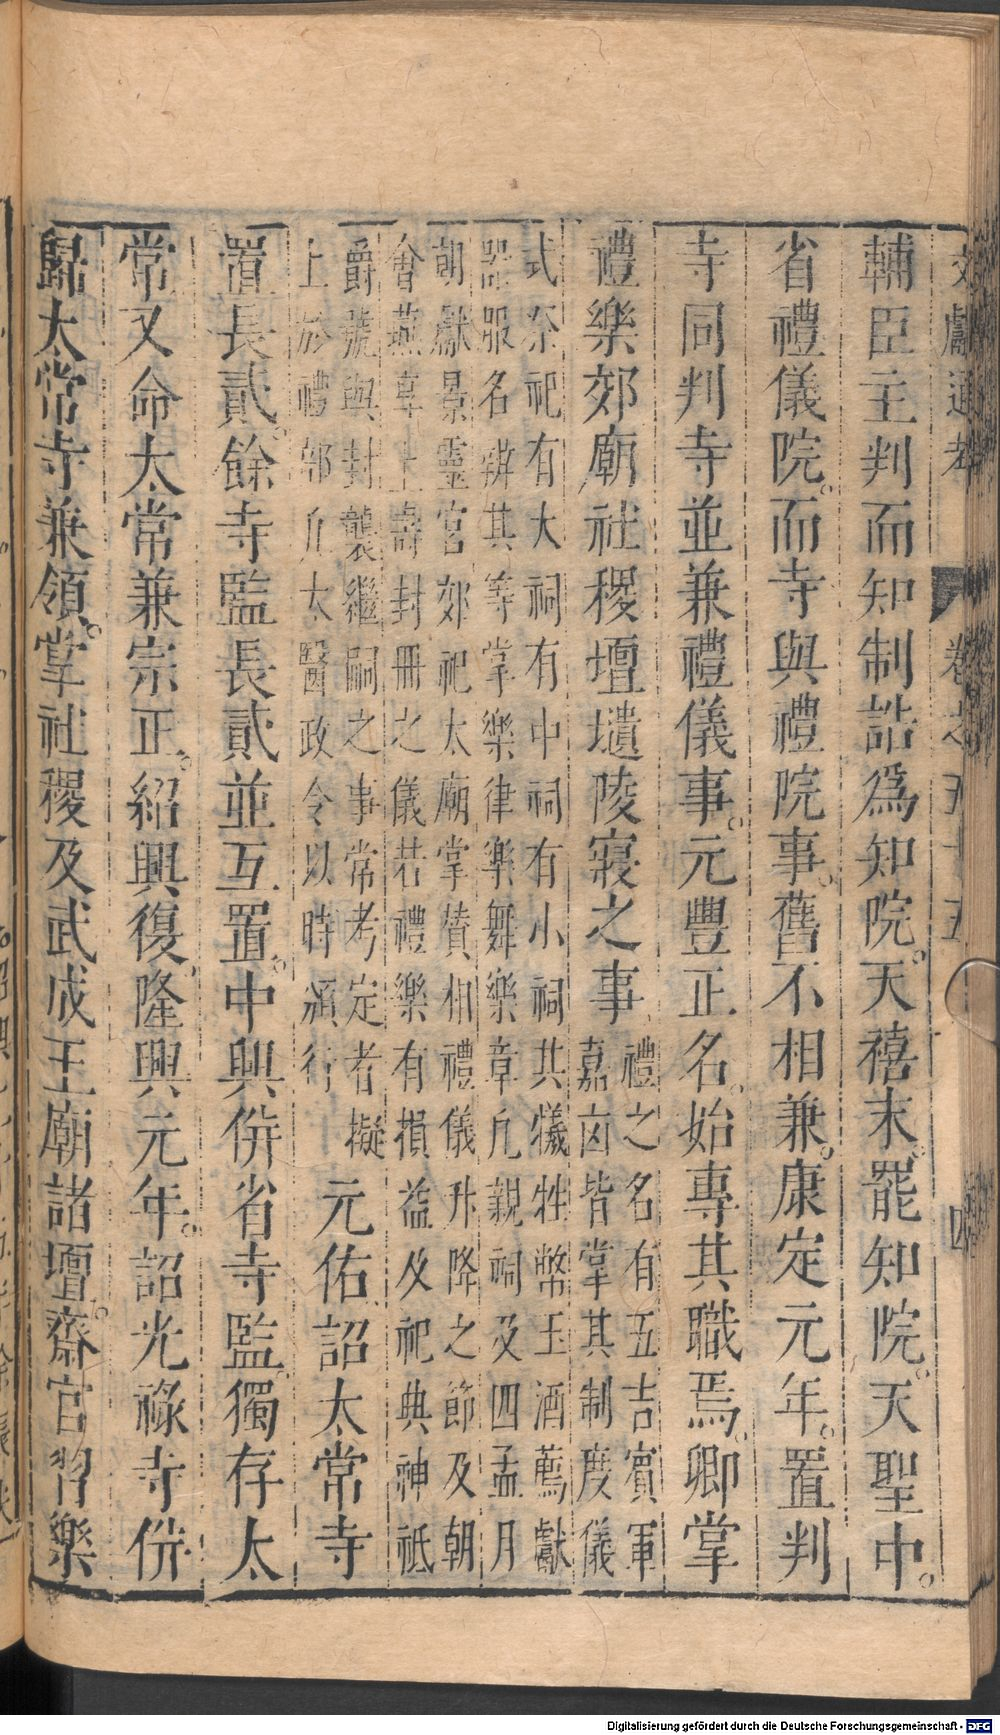 文獻通考 卷之五十五 四
輔臣主判而知制誥爲知院。天禧末。罷知院。天聖中。
省禮儀院。而寺與禮院事。舊不相兼。康定元年。置判
寺同判寺並兼禮儀事。元豐正名。始專其職焉。卿掌
禮樂郊廟社稷壇壝陵寢之事
禮之名有五吉賓軍
嘉凶皆掌其制度儀
式祭祀有大祠有中祠有小祠共犧牲幣玉酒薦獻
器服名辨其等掌樂律樂舞樂章凢親祠及四孟月
朝獻景靈宮郊祀太廟掌贊相禮儀升降之節及朝
會燕享上壽封冊之儀若禮樂有損益及祀典神祗
爵號與封襲繼嗣之事常考定者擬
上於禮部凢太醫政令以時頒行
元佑詔太常寺
置長貳。餘寺監長貳並互置。中興併省寺監。獨存太
常又命太常兼宗正。紹興復。隆興元年。詔光祿寺併
歸太常寺兼領。掌社稷及武成王廟諸壇。齋宮習樂
Digitalisierung gefördert durch die Deutsche Forschungsgemeinschaft - DFG